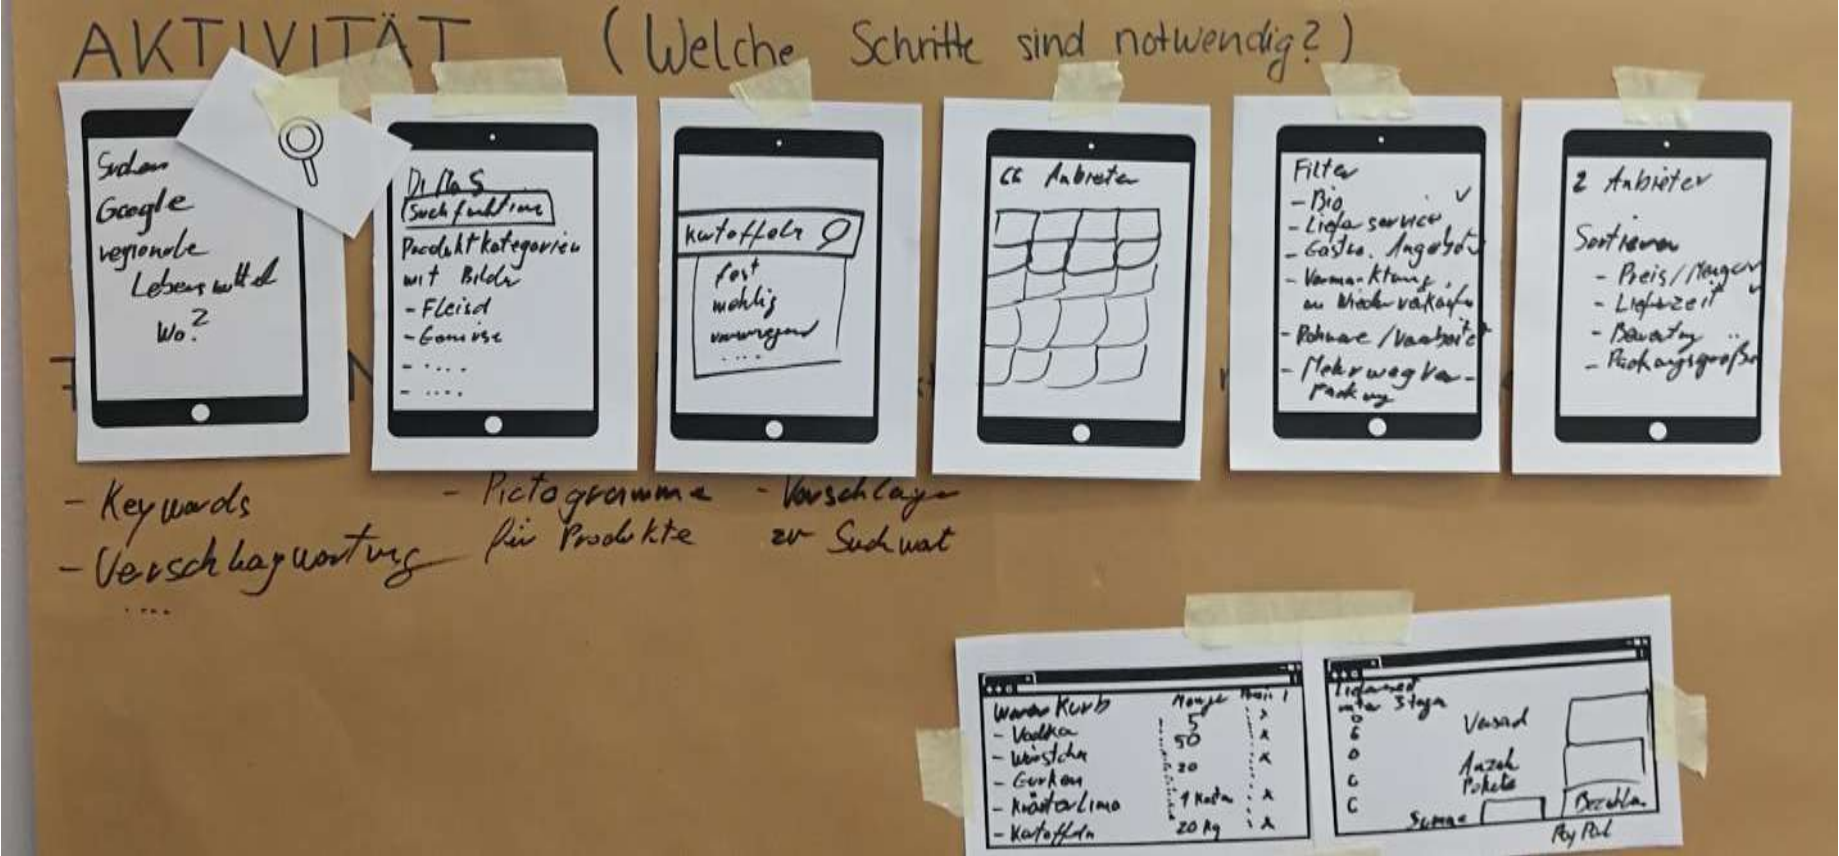 AKTIVITÄT (Welche Schritte sind notwendig?)
Suchen
Google
regionale
Lebensmittel
Wo?
DiMaS
Suchfunktion
Produktkategorien
mit Bilder
- Fleisch
- Gemüse
- ....
- ....
Kartoffeln
fest
mehlig
....
66 Anbieter
Filter
- Bio ✓
- Lieferservice
- Gastro. Angebot
- Vermarktung
an Wiederverkäufer
- Rohware / Verarbeitet
- Mehrwegver-
packung
2 Anbieter
Sortieren
- Preis / Mengen
- Lieferzeit ✓
- Bewertung
- Packungsgröße
- Keywords
- Verschlagwortung
....
- Pictogramme
für Produkte
- Vorschläge
zur Suchwort
Waren Kurb Menge Preis
- Vodka 5 x
- Würstchen 50 x
- Gurken 20 x
- Kräuterlimo 1 Kasten x
- Kartoffeln 20 Kg x
Lieferzeit
unter 3 Tagen
Versand
Anzah
Pakete
Summe
Bezahlen
PayPal